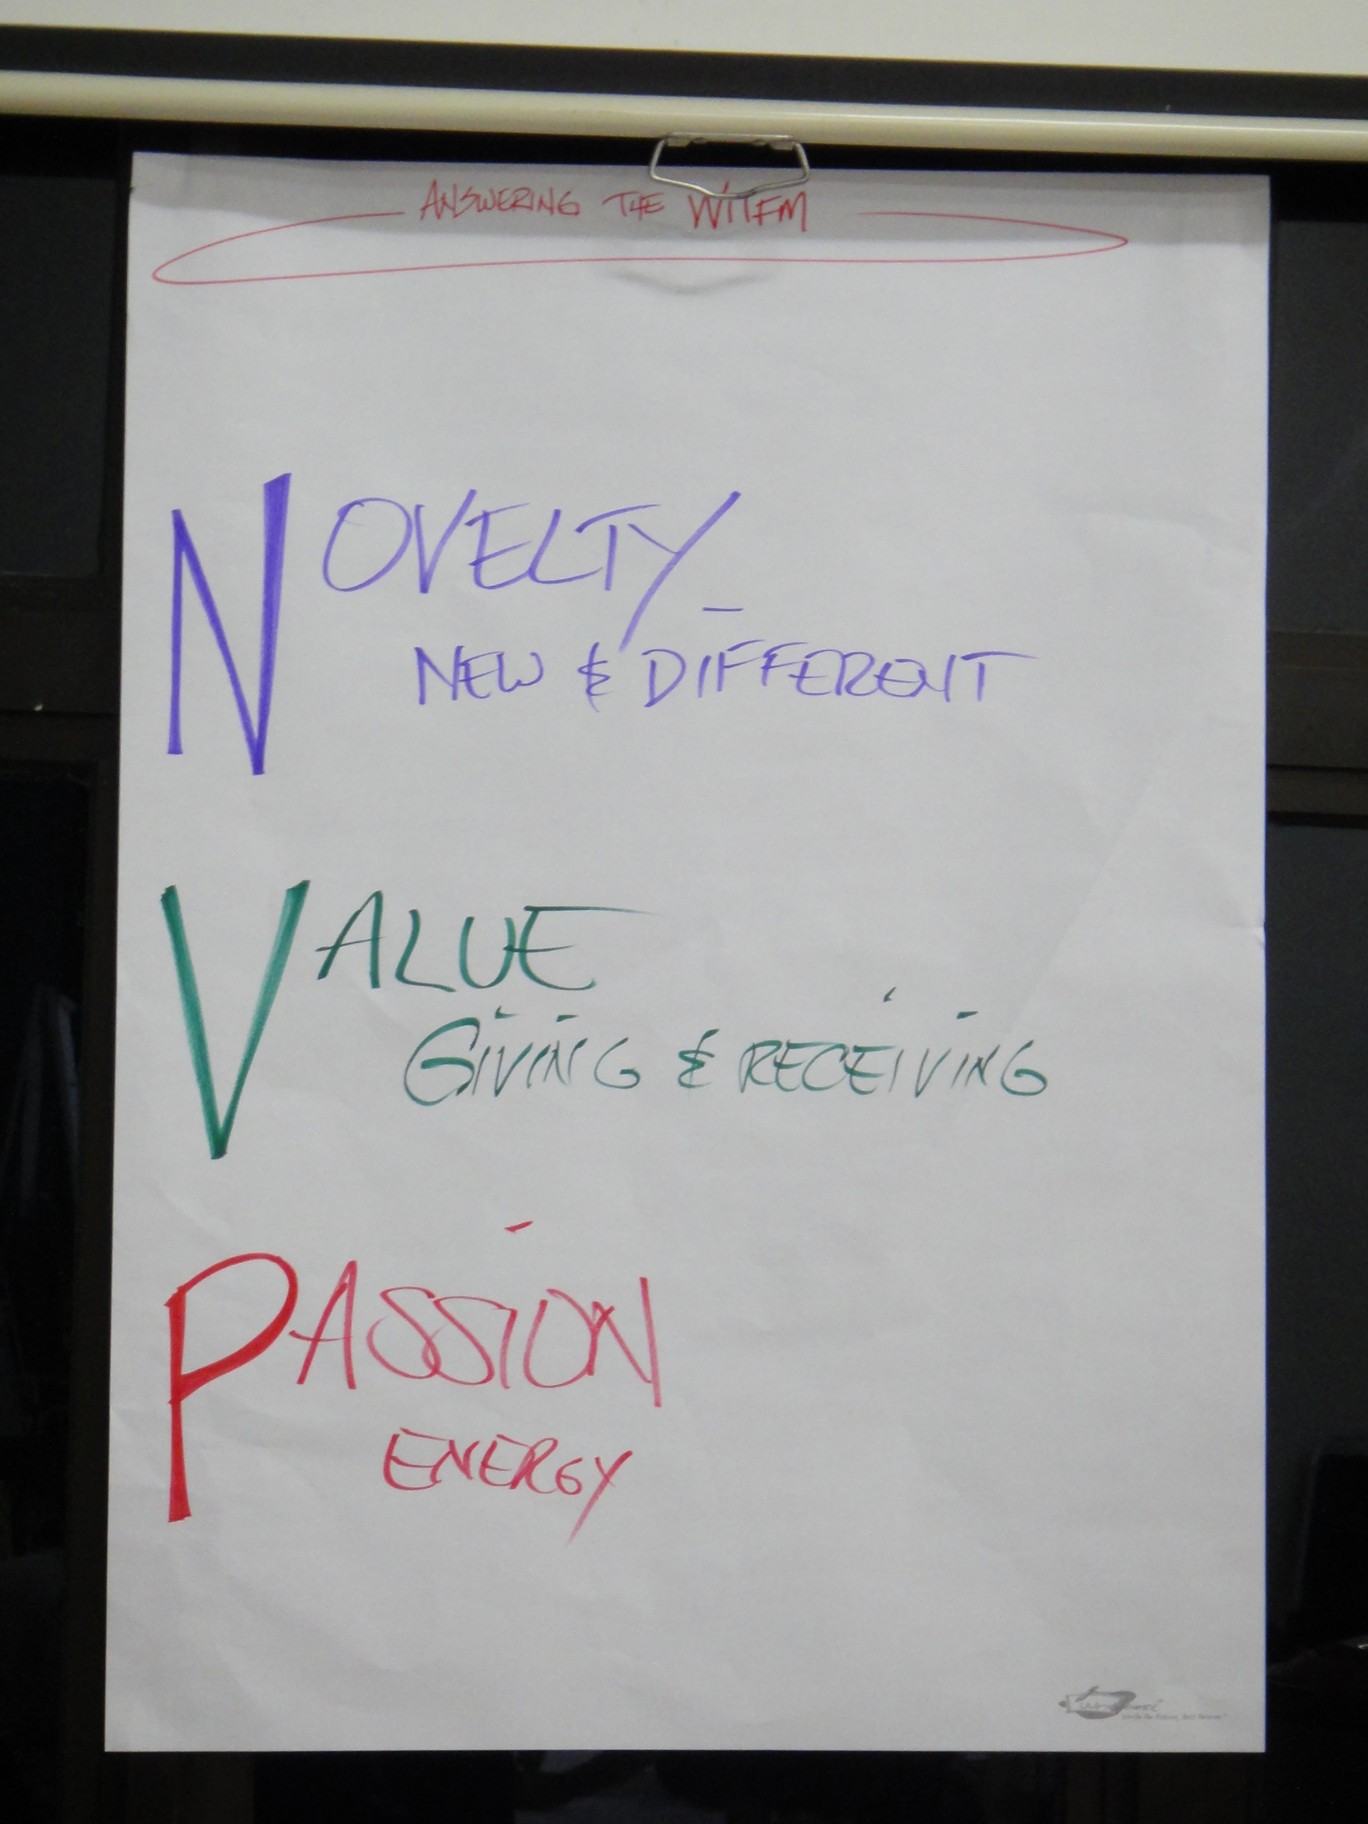 ANSWERING THE WIIFM
NOVELTY
NEW & DIFFERENT
VALUE
GIVING & RECEIVING
PASSION
ENERGY